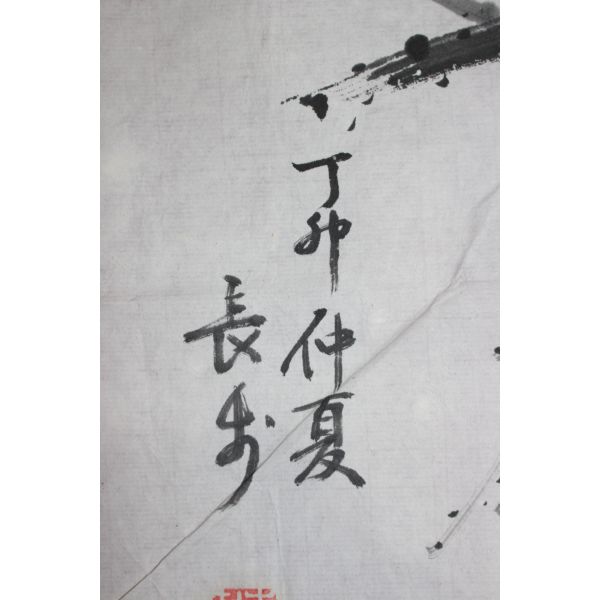 丁卯仲夏
長步